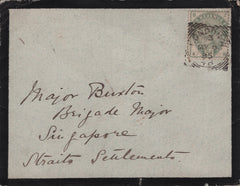 Major Buxton
Brigade Major
Singapore
Straits Settlements.